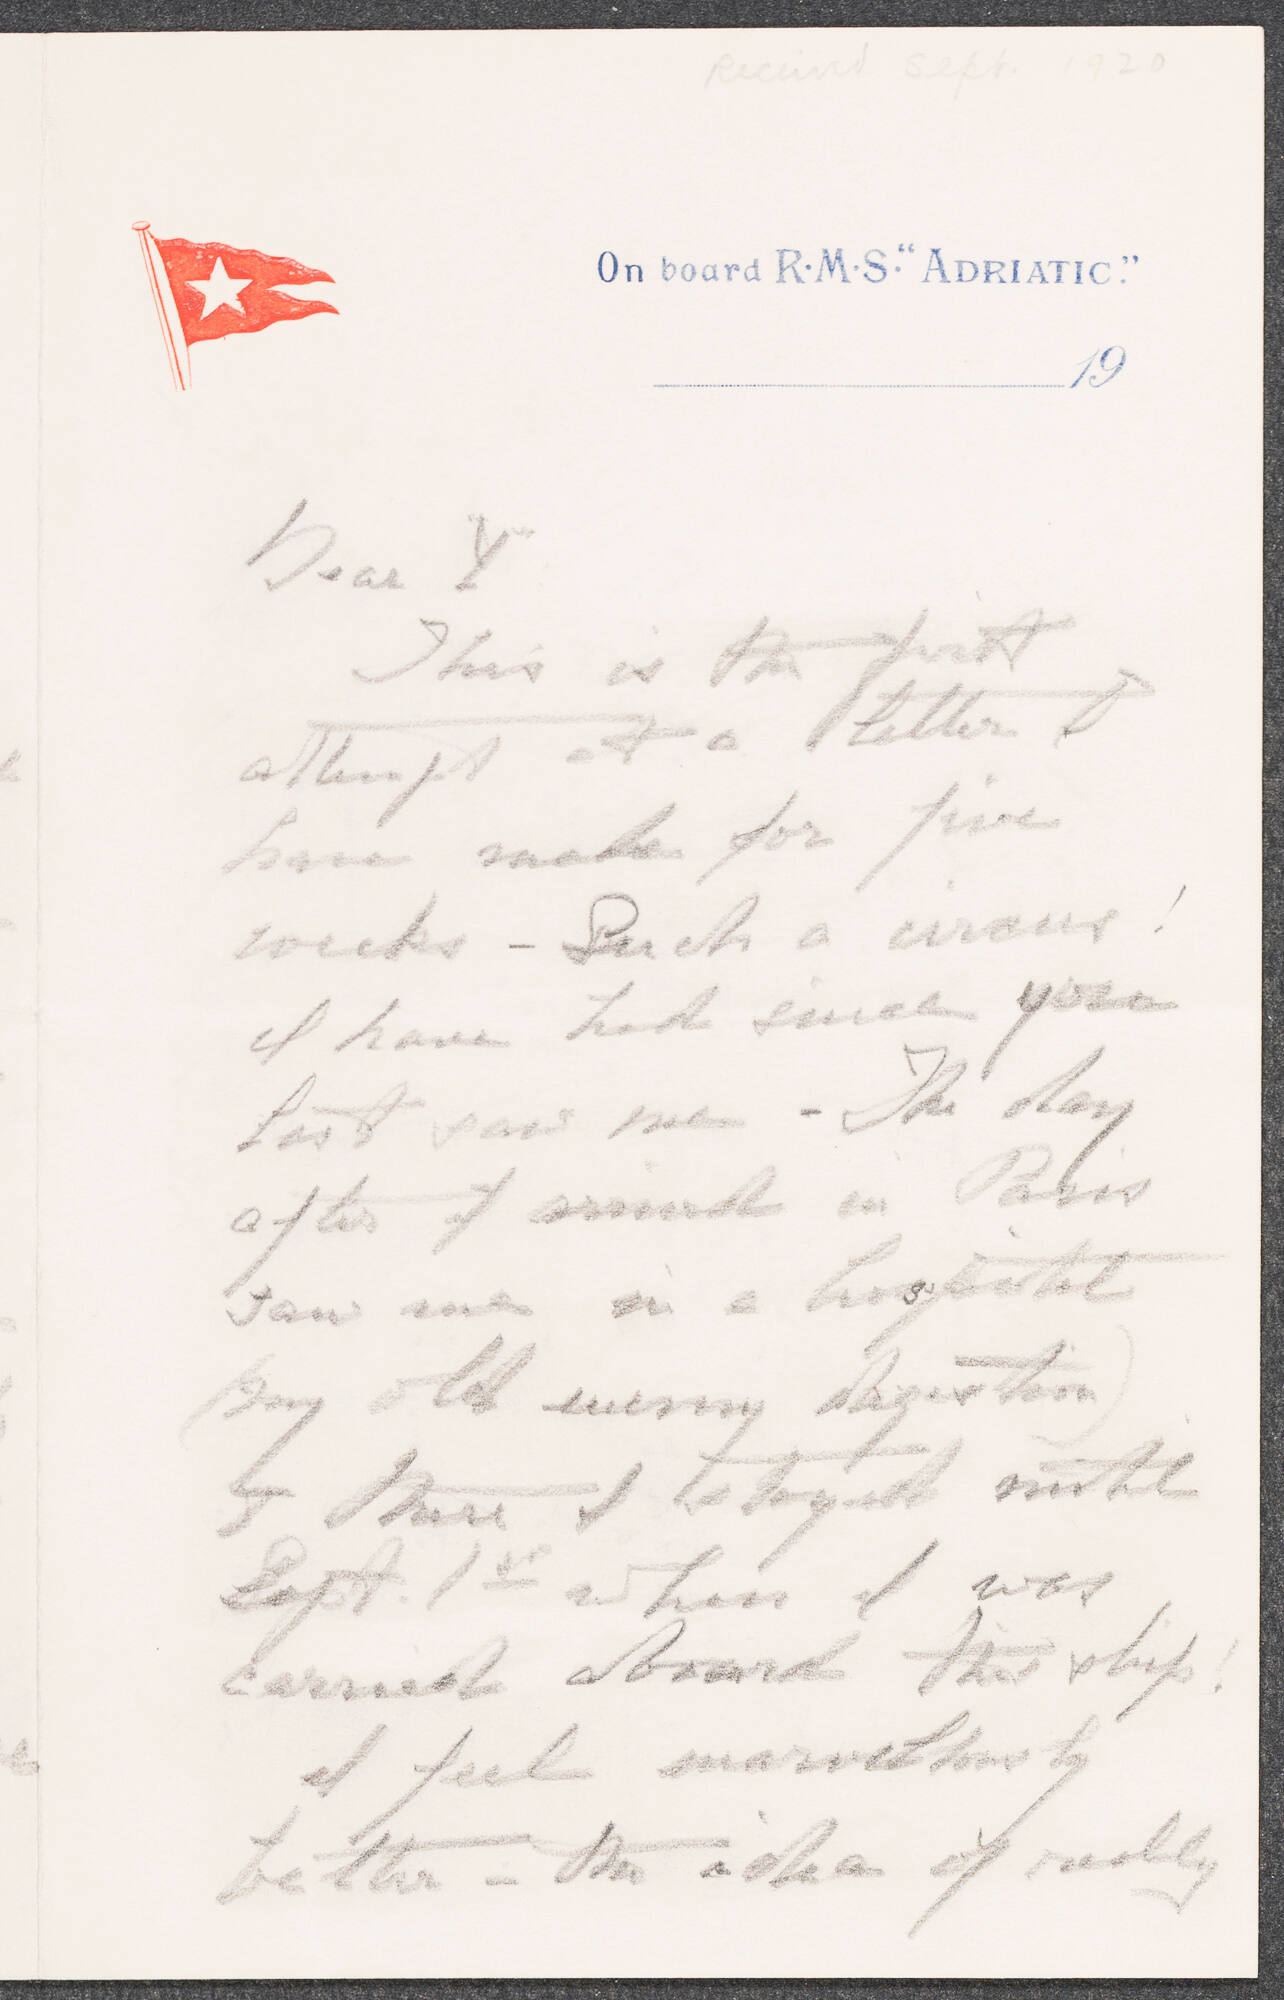 Received Sept. 1920
On board R.M.S. "ADRIATIC."
19
Dear "Y"
This is the first
attempt at a letter I
have made for five
weeks - Such a circus!
I have had since you
last saw me - The day
after I arrived in Paris
saw me in a hospital
(my old enemy digestion)
& there I stayed until
Sept. 1st when I was
carried aboard this ship!
I feel marvellously
better - the idea of really